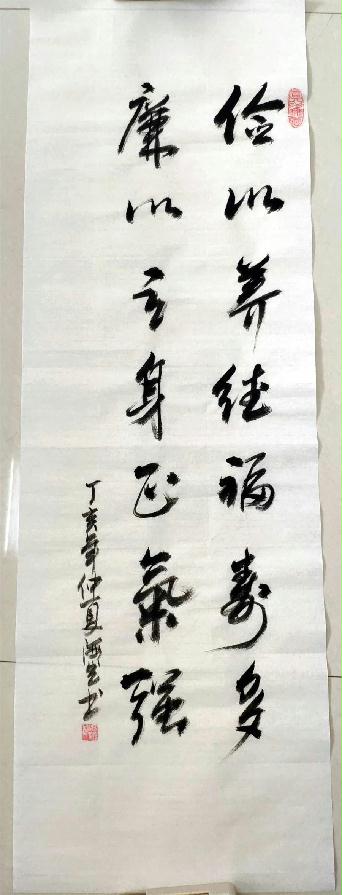 俭以养德福寿多
廉以立身正氣强
丁亥年仲夏 书